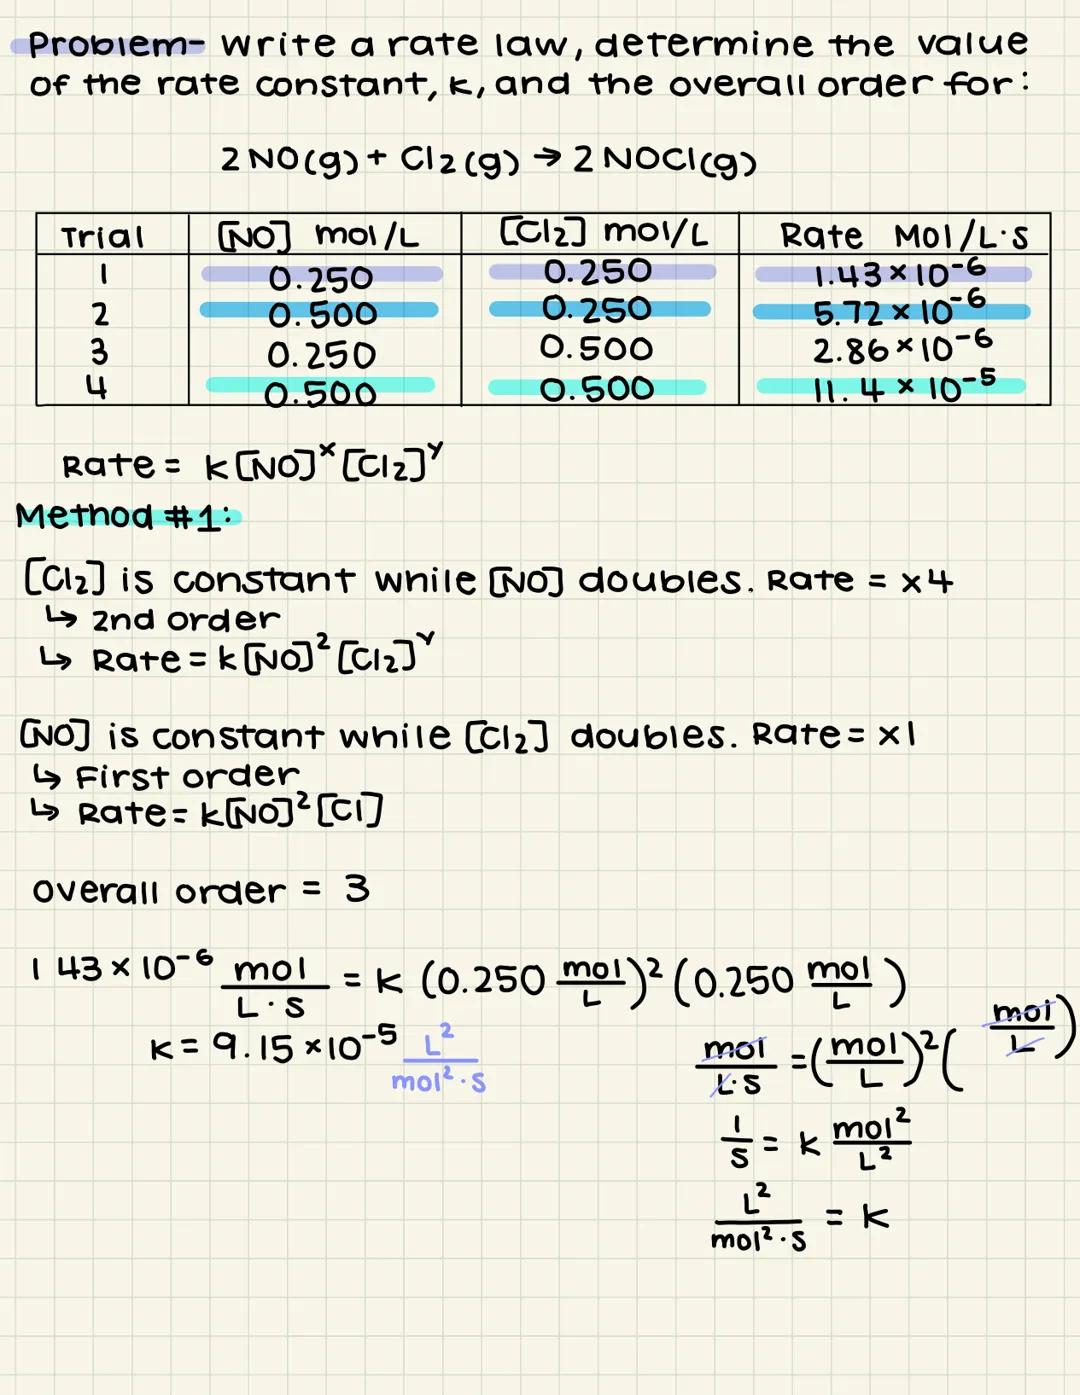 Problem- Write a rate law, determine the value
of the rate constant, k, and the overall order for:
2 NO(g) + Cl₂(g) → 2 NOCl(g)
Trial [NO] mol/L [Cl₂] mol/L Rate Mol/L·s
1 0.250 0.250 1.43 × 10⁻⁶
2 0.500 0.250 5.72 × 10⁻⁶
3 0.250 0.500 2.86 × 10⁻⁶
4 0.500 0.500 11.4 × 10⁻⁵
Rate = k[NO]ˣ[Cl₂]ʸ
Method #1:
[Cl₂] is constant while [NO] doubles. Rate = x4
↳ 2nd order
↳ Rate = k[NO]²[Cl₂]ʸ
[NO] is constant while [Cl₂] doubles. Rate = x1
↳ First order
↳ Rate = k[NO]²[Cl]
overall order = 3
1 43 × 10⁻⁶ mol/L·s = k (0.250 mol/L)² (0.250 mol/L)
k = 9.15 × 10⁻⁵ L²/mol²·s
mol/L·s = (mol/L)² (mol/L)
1/s = k mol²/L²
L²/mol²·s = k